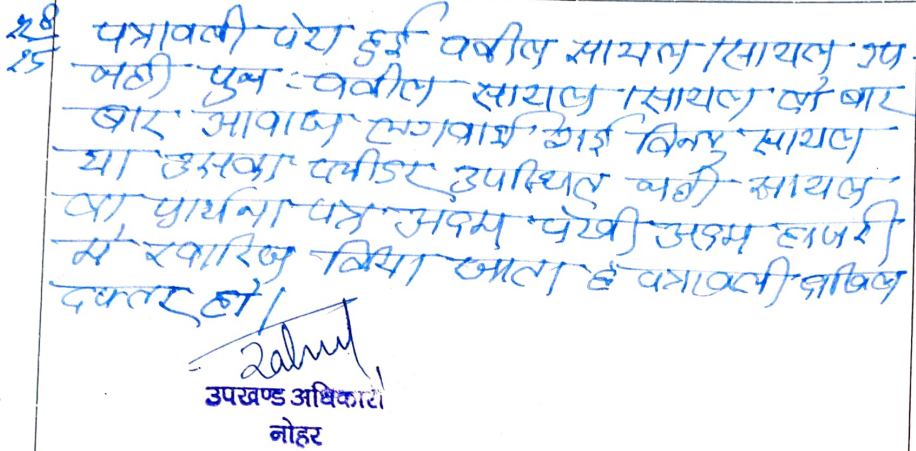 पत्रावली पेश हुई वकील सायल/सायल उप.
नही पुनः वकील सायल/सायल को बार
बार आवाज लगवाई गई किन्तु सायल
या उसका प्लीडर उपस्थित नही सायल
का प्रार्थना पत्र अदम पेरवी अदम हाजरी
मे खारिज किया जाता है पत्रावली दाखिल
दफ्तर हो।
उपखण्ड अधिकारी
नोहर